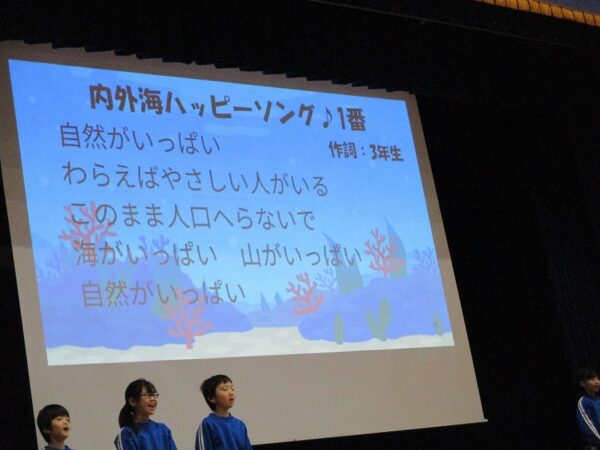 内外海ハッピーソング♪1番
作詞：3年生
自然がいっぱい
わらえばやさしい人がいる
このまま人口へらないで
海がいっぱい　山がいっぱい
自然がいっぱい